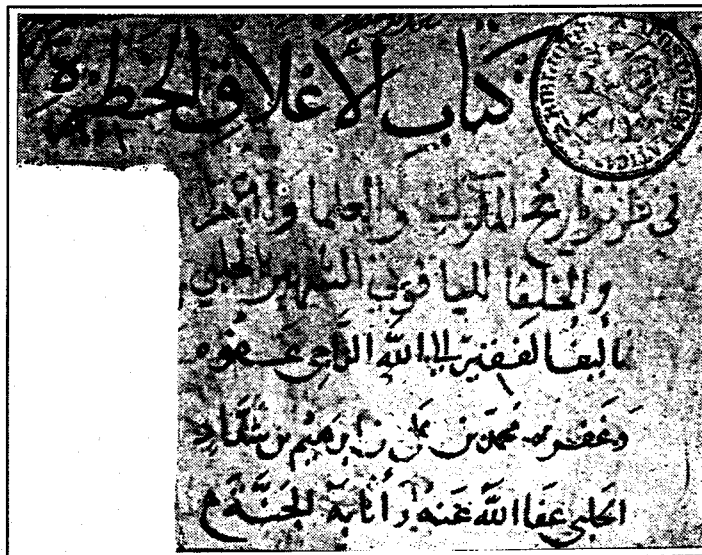 كتاب الأغلاق الخطيرة
في تواريخ الملوك والعلما والأمرا
والخلفا الشهير بالحلبي
تأليف الفقير إلى الله الراجي عفوه
وغفره محمد بن علي بن إبرهيم بن شداد
الحلبي عفا الله عنه وأثابه الجنة